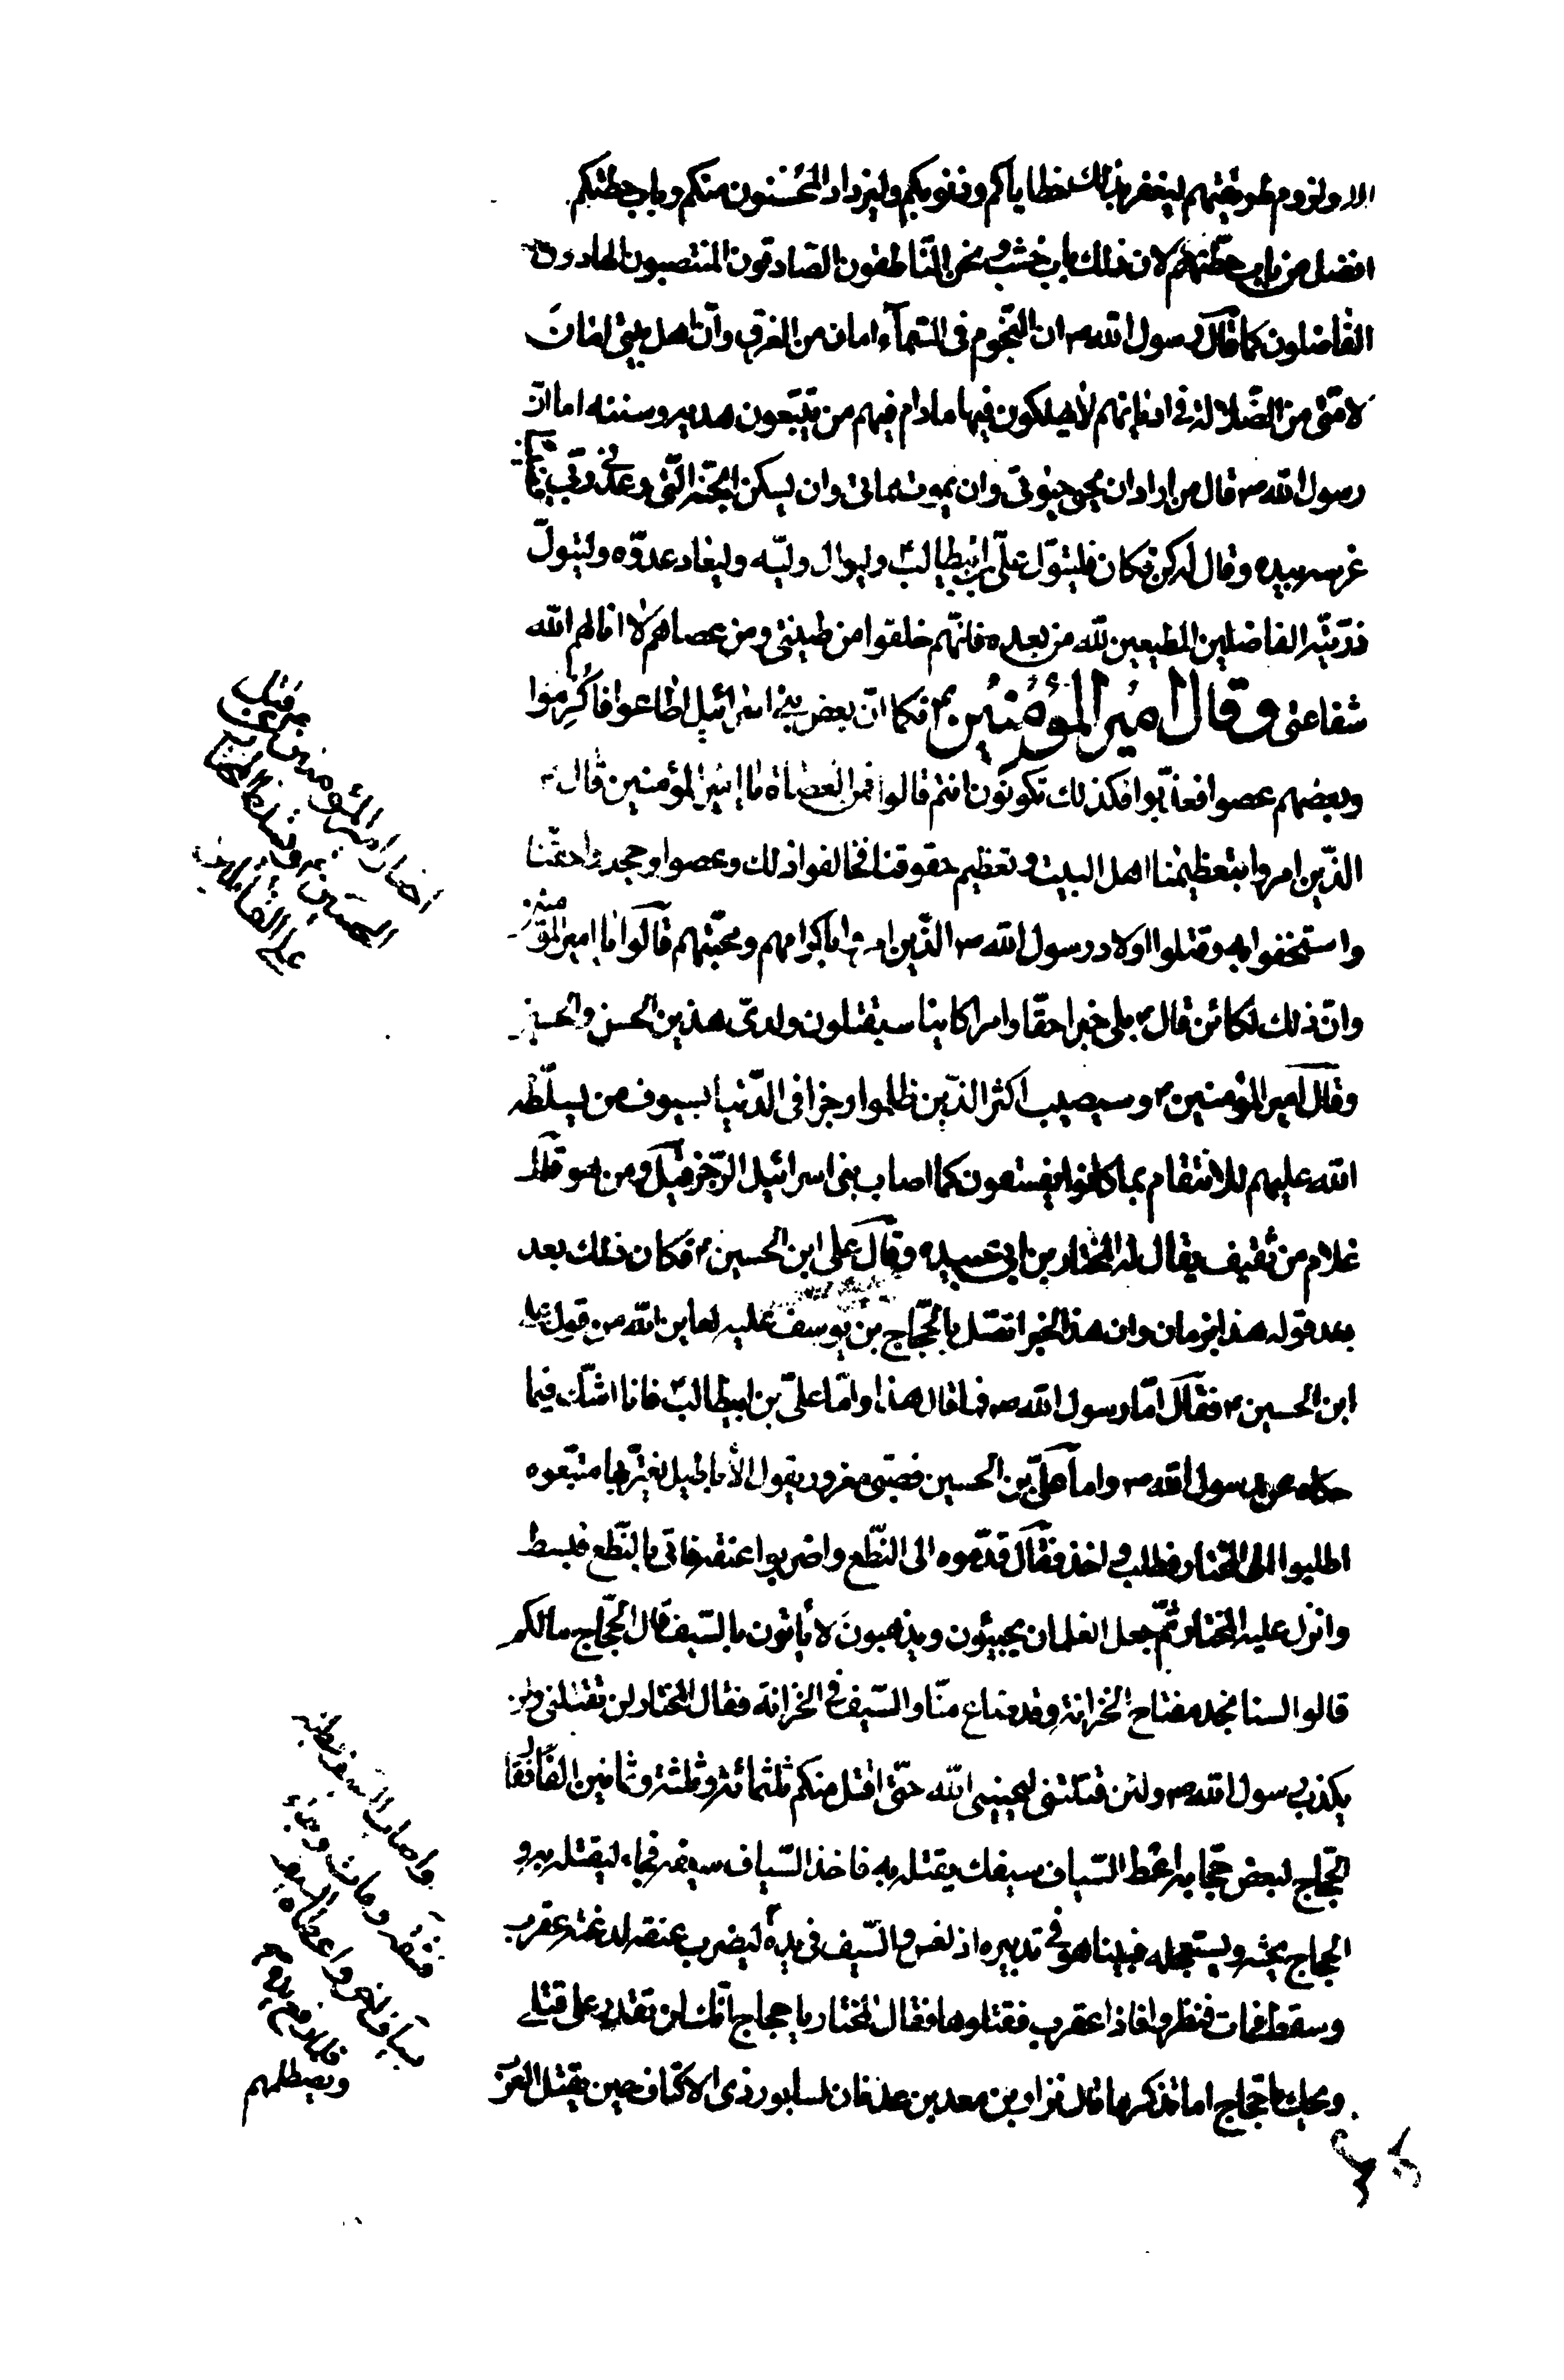 ولزوم طريقتهم ليغفر بذلك خطاياكم وذنوبكم وليزداد المحسنون منكم وباب حطتكم
افضل من باب حطتهم لان ذلك باب خشب ونحن الناطقون الصادقون المنتصبون الهادون
الفاضلون كما قال رسول الله ص ان النجوم فى السماء امان من الغرق وان اهل بيتى امان
لامتى من الضلالة فى اديانهم لا يهلكون فيها مادام فيهم من يتبعون هديه وسنته اما ان
رسول الله ص قال من اراد ان يحيى حيوتى وان يموت مماتى وان يسكن الجنة التى وعدنى ربى
غرسه بيده وقال له كن فكان فليتول على بن ابيطالب ع وليوال وليه وليعاد عدوه وليتول
ذريته الفاضلين المطيعين لله من بعده فانهم خلقوا من طينتى ومن عصاهم لا انالهم الله
شفاعتى وقال امير المؤمنين ع فكما ان بعض بنى اسرائيل اطاعوا فاكرموا
وبعضهم عصوا فعذبوا فكذلك تكونون انتم قالوا فمن العصاة يا امير المؤمنين قال ع
الذين امروا بتعظيمنا اهل البيت وتعظيم حقوقنا فخالفوا ذلك وعصوا وجحدوا حقنا
واستخفوا به وقتلوا اولاد رسول الله ص الذين امروا باكرامهم ومحبتهم قالوا يا امير المؤمنين
وان ذلك لكائن قال ع بلى خبرا حقا وامرا كاينا سيقتلون ولدى هذين الحسن والحسين
وقال امير المؤمنين ع وسيصيب اكثر الذين ظلموا رجزا فى الدنيا بسيوف من يسلطه
الله عليهم للانتقام بما كانوا يفسقون كما اصاب بنى اسرائيل الرجز قيل ومن هو قال
غلام من ثقيف يقال له المختار بن ابى عبيده وقال على ابن الحسين ع فكان ذلك بعد
بعد قوله هذا بزمان وان هذا الخبر اتصل بالحجاج بن يوسف عليه لعاين الله من قول على
ابن الحسين ع فقال اما رسول الله ص فما قال هذا واما على بن ابيطالب ع فانا اشك فيما
حكاه عن رسول الله ص واما على بن الحسين فصبى مغرور يقول الاباطيل يغتر بها متبعوه
اطلبوا الى المختار فطلب واخذ فقال قدموه الى النطع واضربوا عنقه فاتى بالنطع فبسط
وانزل عليه المختار ثم جعل الغلمان يجيئون ويذهبون لا يأتون بالسيف قال الحجاج مالكم
قالوا لسنا نجد مفتاح الخزانة وقد ضاع منا والسيف فى الخزانة فقال المختار لن تقتلنى ولن
يكذب رسول الله ص ولئن قتلتنى ليحيينى الله حتى اقتل منكم ثلثمائة وثلثة وثمانين الفا فقال
الحجاج لبعض حجابه اعط السياف سيفك يقتله به فاخذ السياف سيفه فجاء ليقتله به و
الحجاج يحثه ويستعجله فبينا هو فى تدبيره اذ لغس والسيف فى يده ليضرب عنقه لدغته عقرب
وسقط فمات فنظروا فاذا عقرب فقتلوها فقال المختار يا حجاج انك لن تقدر على قتلى
ويحك يا حجاج اما تذكر ما قال نزار بن معد بن عدنان لسابور ذى الاكتاف حين يقتل العرب
اخبار امير المؤمنين
ويصطلمهم